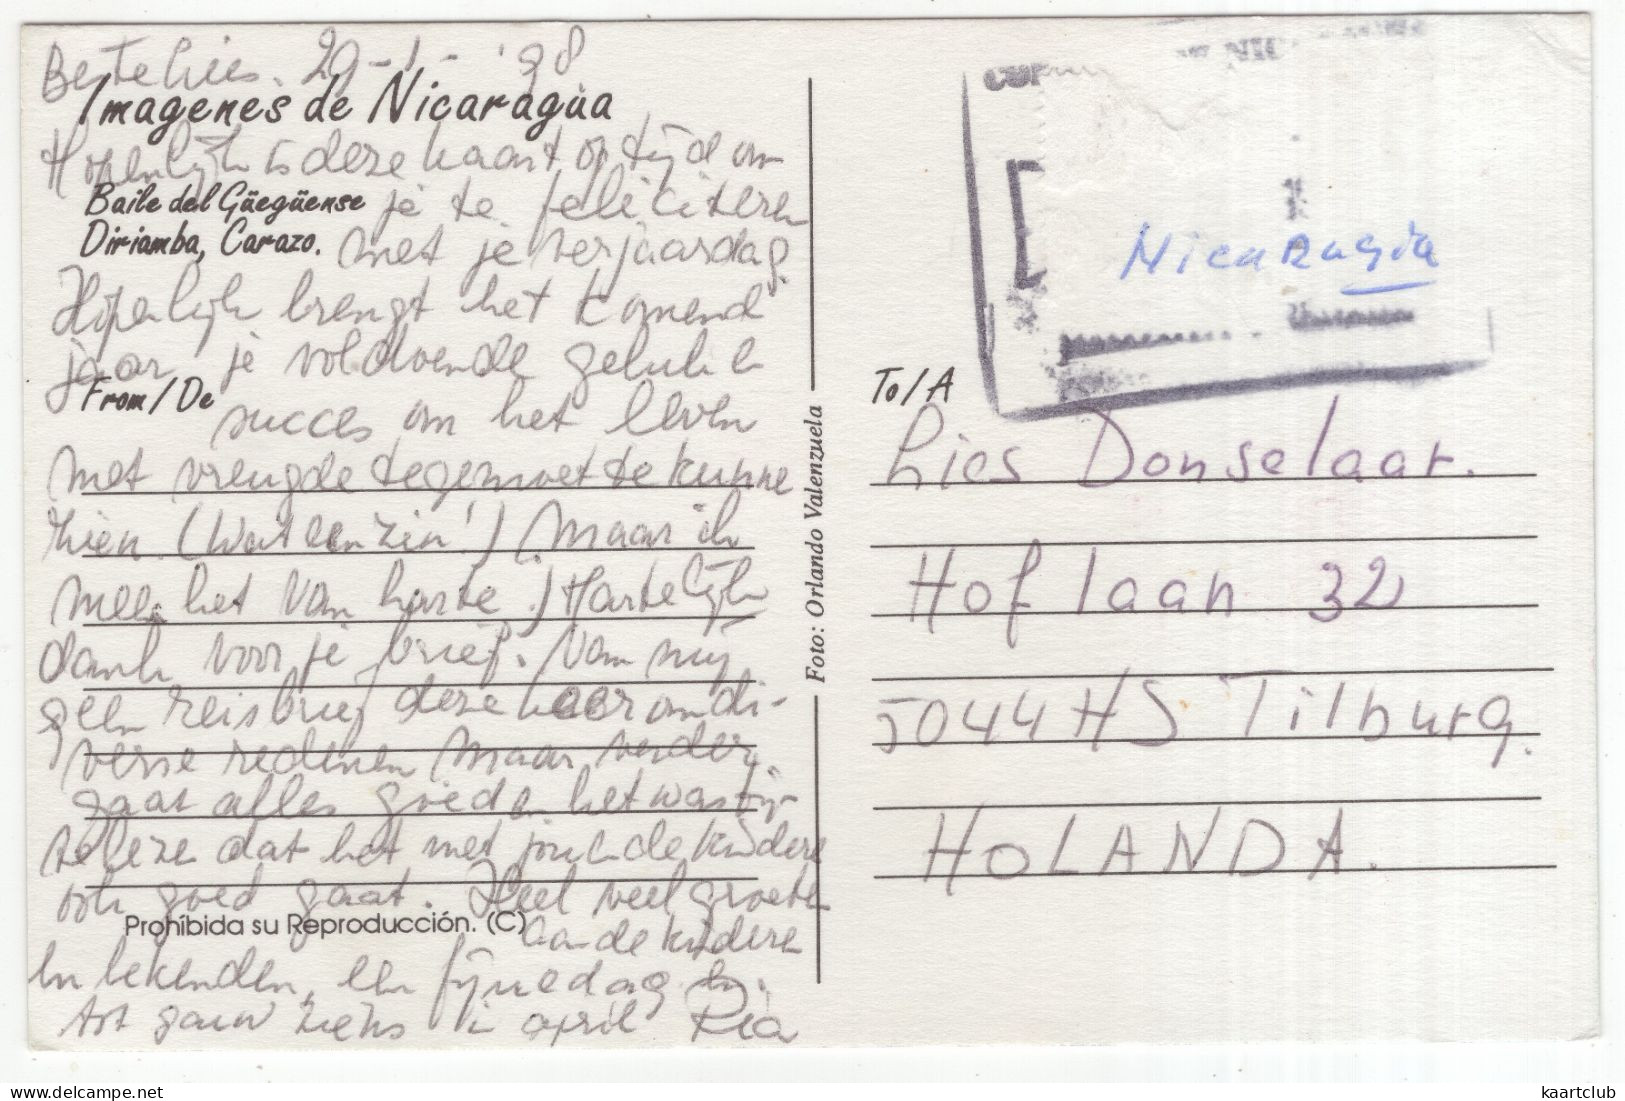 Beste Lies. 29-1-'98
Imagenes de Nicaragua
Hopenlijk is deze kaart op tijd om
Baile del Güegüense
je te feliciteren
Diriamba, Carazo.
met je verjaardag.
Hopenlijk brengt het komend
jaar je voldoende geluk en
From/De
succes om het leven
met vreugde tegemoet te kunne
zien. (Wat een zin!) (Maar ik
meen het van harte.) Hartelijk
dank voor je brief. Van mij
geen reisbrief deze keer om di-
verse redenen maar verder
gaat alles goed en het was fijn
te lezen dat het met jou en de kindere
ook goed gaat. Heel veel groeten
Prohíbida su Reproducción. (C)
aan de kinderen
en bekenden, een fijne dag en
tot gauw ziens in april Ria
Foto: Orlando Valenzuela
Nicaragua
To/A
Lies Donselaar.
Hoflaan 32
5044 HS Tilburg.
HOLANDA.
kaartclub